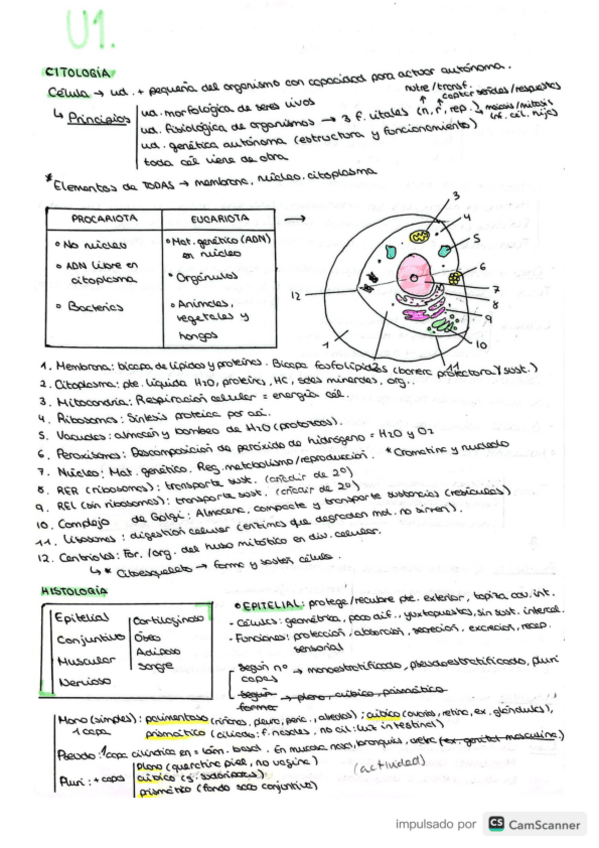 U1.
CITOLOGÍA
Célula → ud. + pequeña del organismo con capacidad para actuar autónoma.
↳ Principios
ud. morfológica de seres vivos
ud. fisiológica de organismos → 3 f. vitales (n, r, rep.)
nutre/transf.
captar señales/respuestas
meiosis/mitosis
ud. genética autónoma (estructura y funcionamiento)
toda cél viene de otra
*Elementos de TODAS → membrana, núcleo, citoplasma
PROCARIOTA
EUCARIOTA
• No núcleo
• ADN libre en citoplasma
• Bacterias
• Mat. genético (ADN) en núcleo
• Orgánulos
• Animales, vegetales y hongos
3
4
5
6
7
8
9
10
11
12
1
2
1. Membrana: bicapa de lípidos y proteínas. Bicapa fosfolípidos (barrera protectora y sust.)
2. Citoplasma: pte. líquida H2O, proteínas, HC, sales minerales, org..
3. Mitocondria: Respiración celular = energía cél.
4. Ribosomas: Síntesis proteica por aá.
5. Vacuolas: almacén y bombeo de H2O (protozoos).
6. Peroxisomas: Descomposición de peróxido de hidrógeno = H2O y O2
7. Núcleo: Mat. genético. Reg. metabolismo/reproducción. *Cromatina y nucleolo
8. RER (ribosomas): transporte sust. (añadir de 2º)
9. REL (sin ribosomas): transporte sust. (añadir de 2º)
10. Complejo de Golgi: Almacena, compacta y transporta sustancias (vesículas)
11. Lisosomas: digestión celular (enzimas que degradan mol. no sirven).
12. Centriolos: For./org. del huso mitótico en div. celular.
↳ * Citoesqueleto → forma y sostén célula.
HISTOLOGÍA
Epitelial
Conjuntivo
Muscular
Nervioso
Cartilaginoso
Óseo
Adiposo
Sangre
• EPITELIAL: protege/recubre pte. exterior, tapiza cav. int.
- Células: geométrica, poco dif., yuxtapuestas, sin sust. intercel.
- Funciones: protección, absorción, secreción, excreción, recep. sensorial
- según nº capas → monoestratificado, pseudoestratificado, pluri
- según forma → plano, cúbico, prismático
Mono (simples): pavimentoso (riñones, pleura, peric., alveolos); cúbico (ovarios, retina, ex. glándulas),
1 capa
prismático (ciliados: f. nasales, no cil: luz intestinal)
Pseudo: 1 capa cilíndrica en = lám. basal. En mucosa nasal, bronquios, uretra (ex. genital masculino)
Pluri: + capas
plano (queratina piel, no vagina)
cúbico (g. sudoríparas)
prismático (fondo saco conjuntivo)
(actividad)
impulsado por CS CamScanner